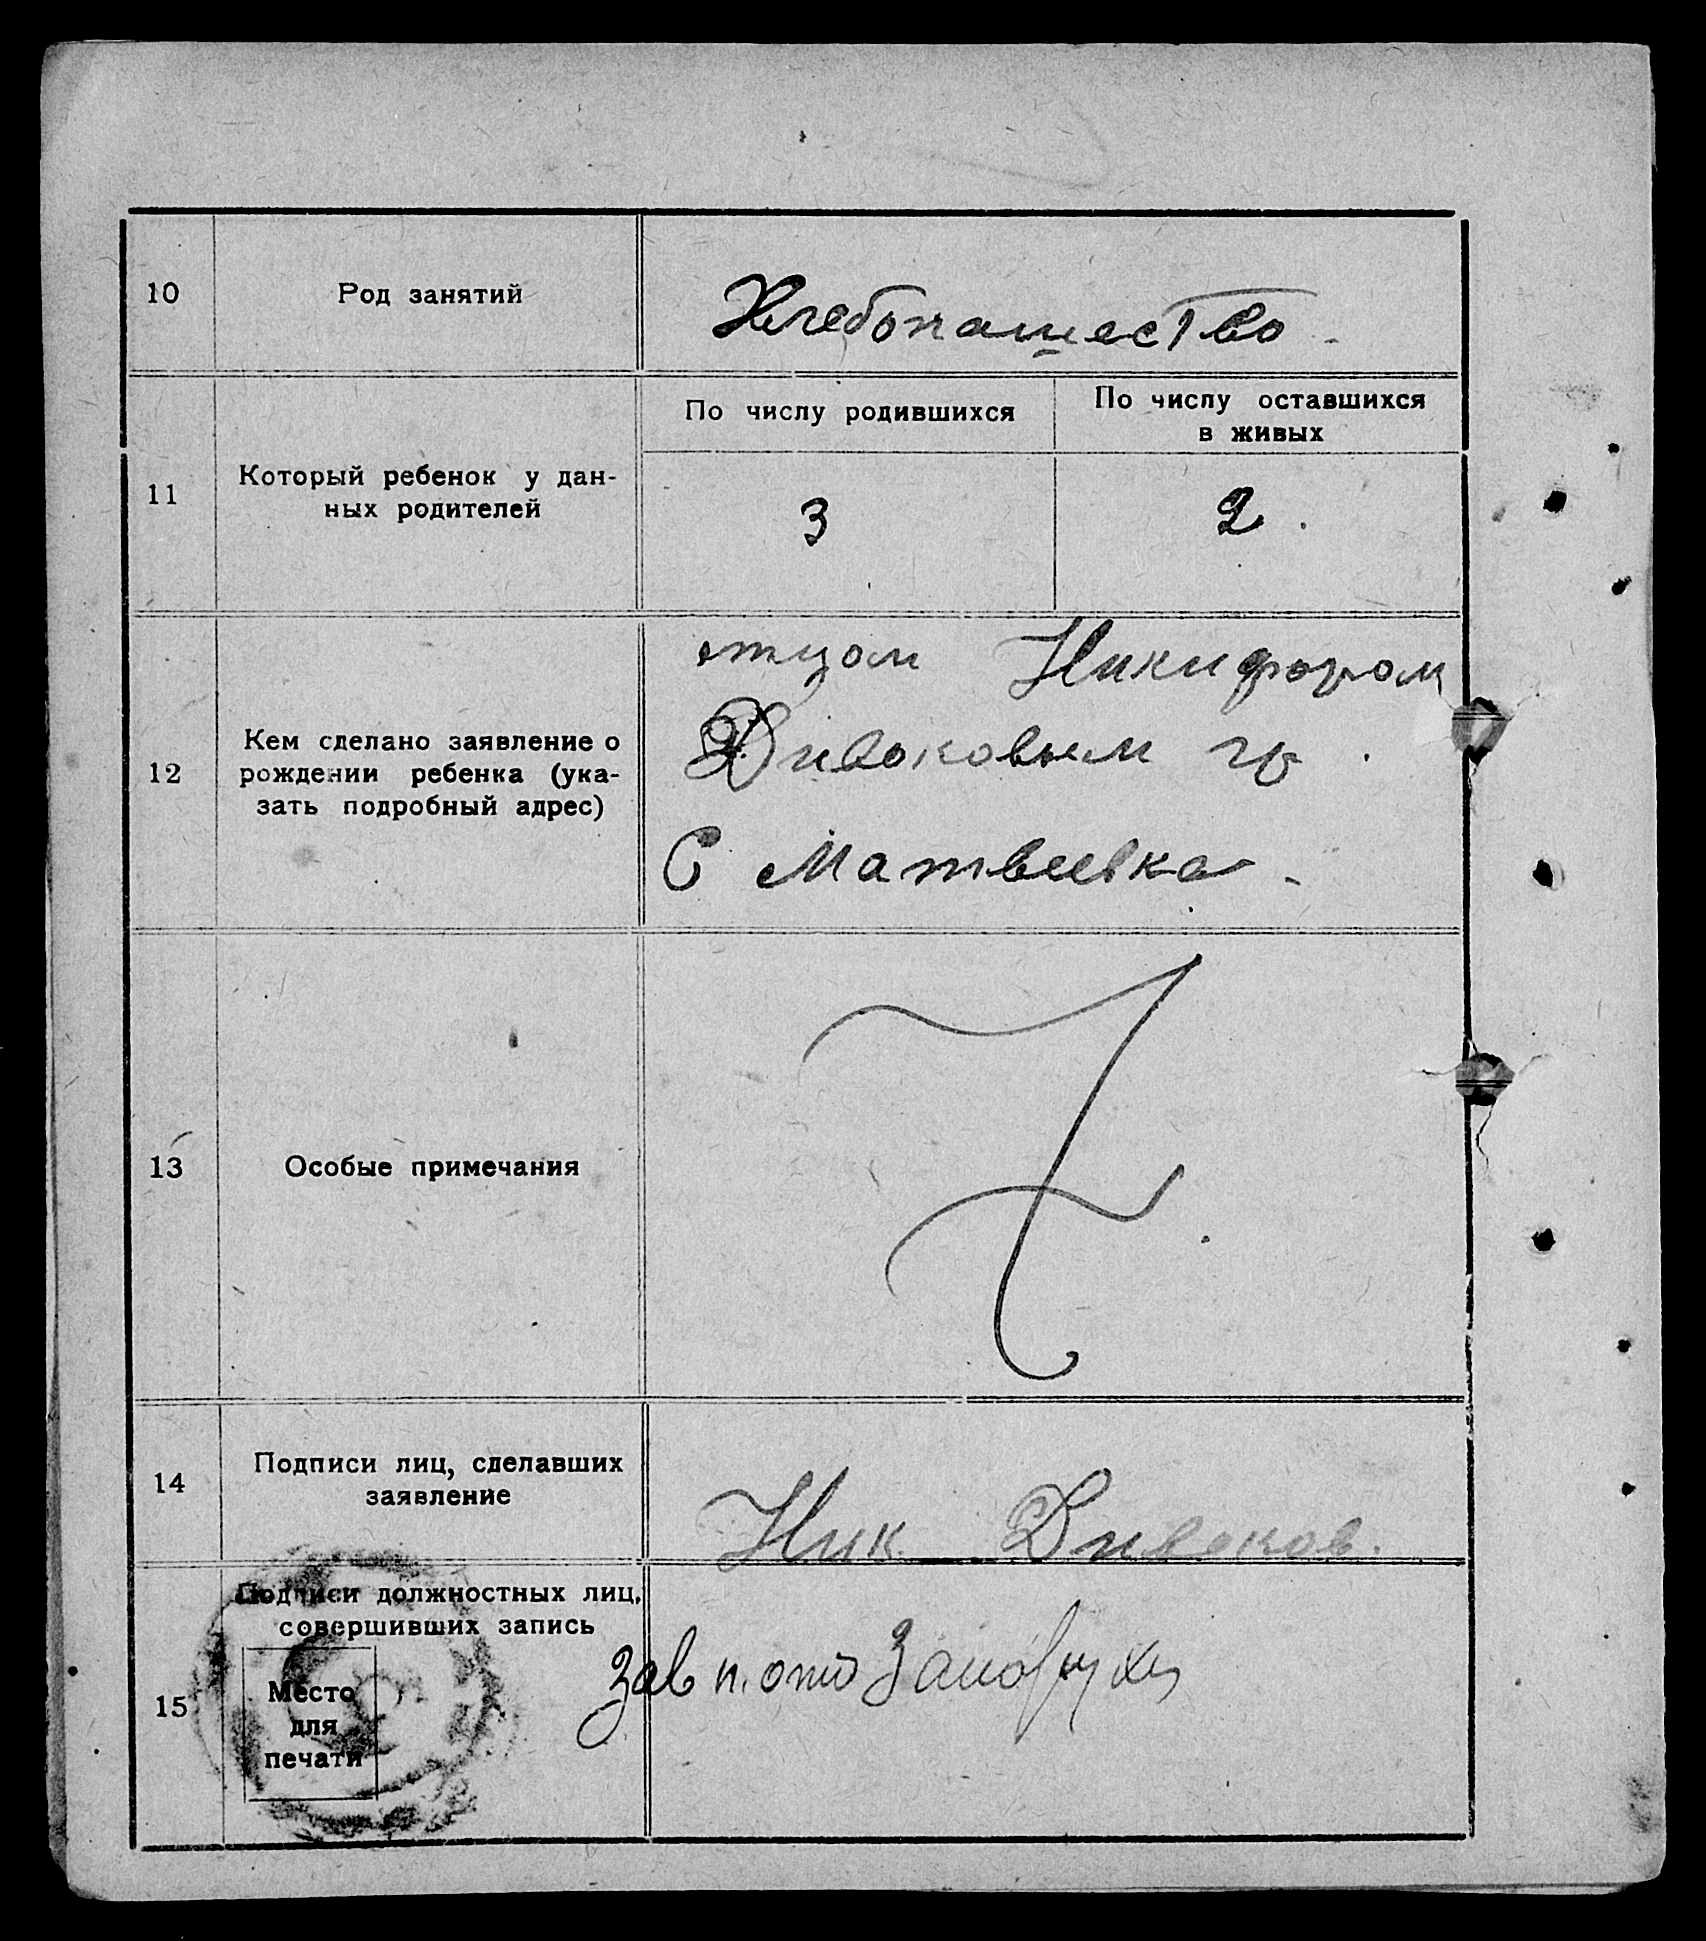 10
Род занятий
Хлебопашество.
11
Который ребенок у дан-
ных родителей
По числу родившихся
По числу оставшихся
в живых
3
2.
12
Кем сделано заявление о
рождении ребенка (ука-
зать подробный адрес)
отцом Никифором
Дивоковым гр.
С Матвеевка.
13
Особые примечания
14
Подписи лиц, сделавших
заявление
Ник Дивоков.
15
Подписи должностных лиц,
совершивших запись
Место
для
печати
Зав п.